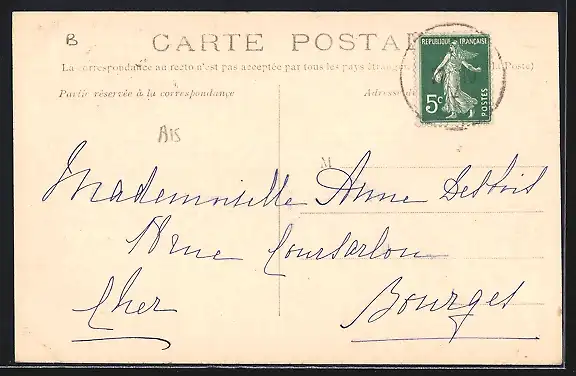 B
CARTE POSTA
La correspondance au recto n'est pas acceptée par tous les pays étrang Poste)
Partie réservée à la correspondance
Adresse d
RÉPUBLIQUE FRANÇAISE
5c
POSTES
A15
M
Mademoiselle Anne
18 rue Coursarlon
Cher Bourges